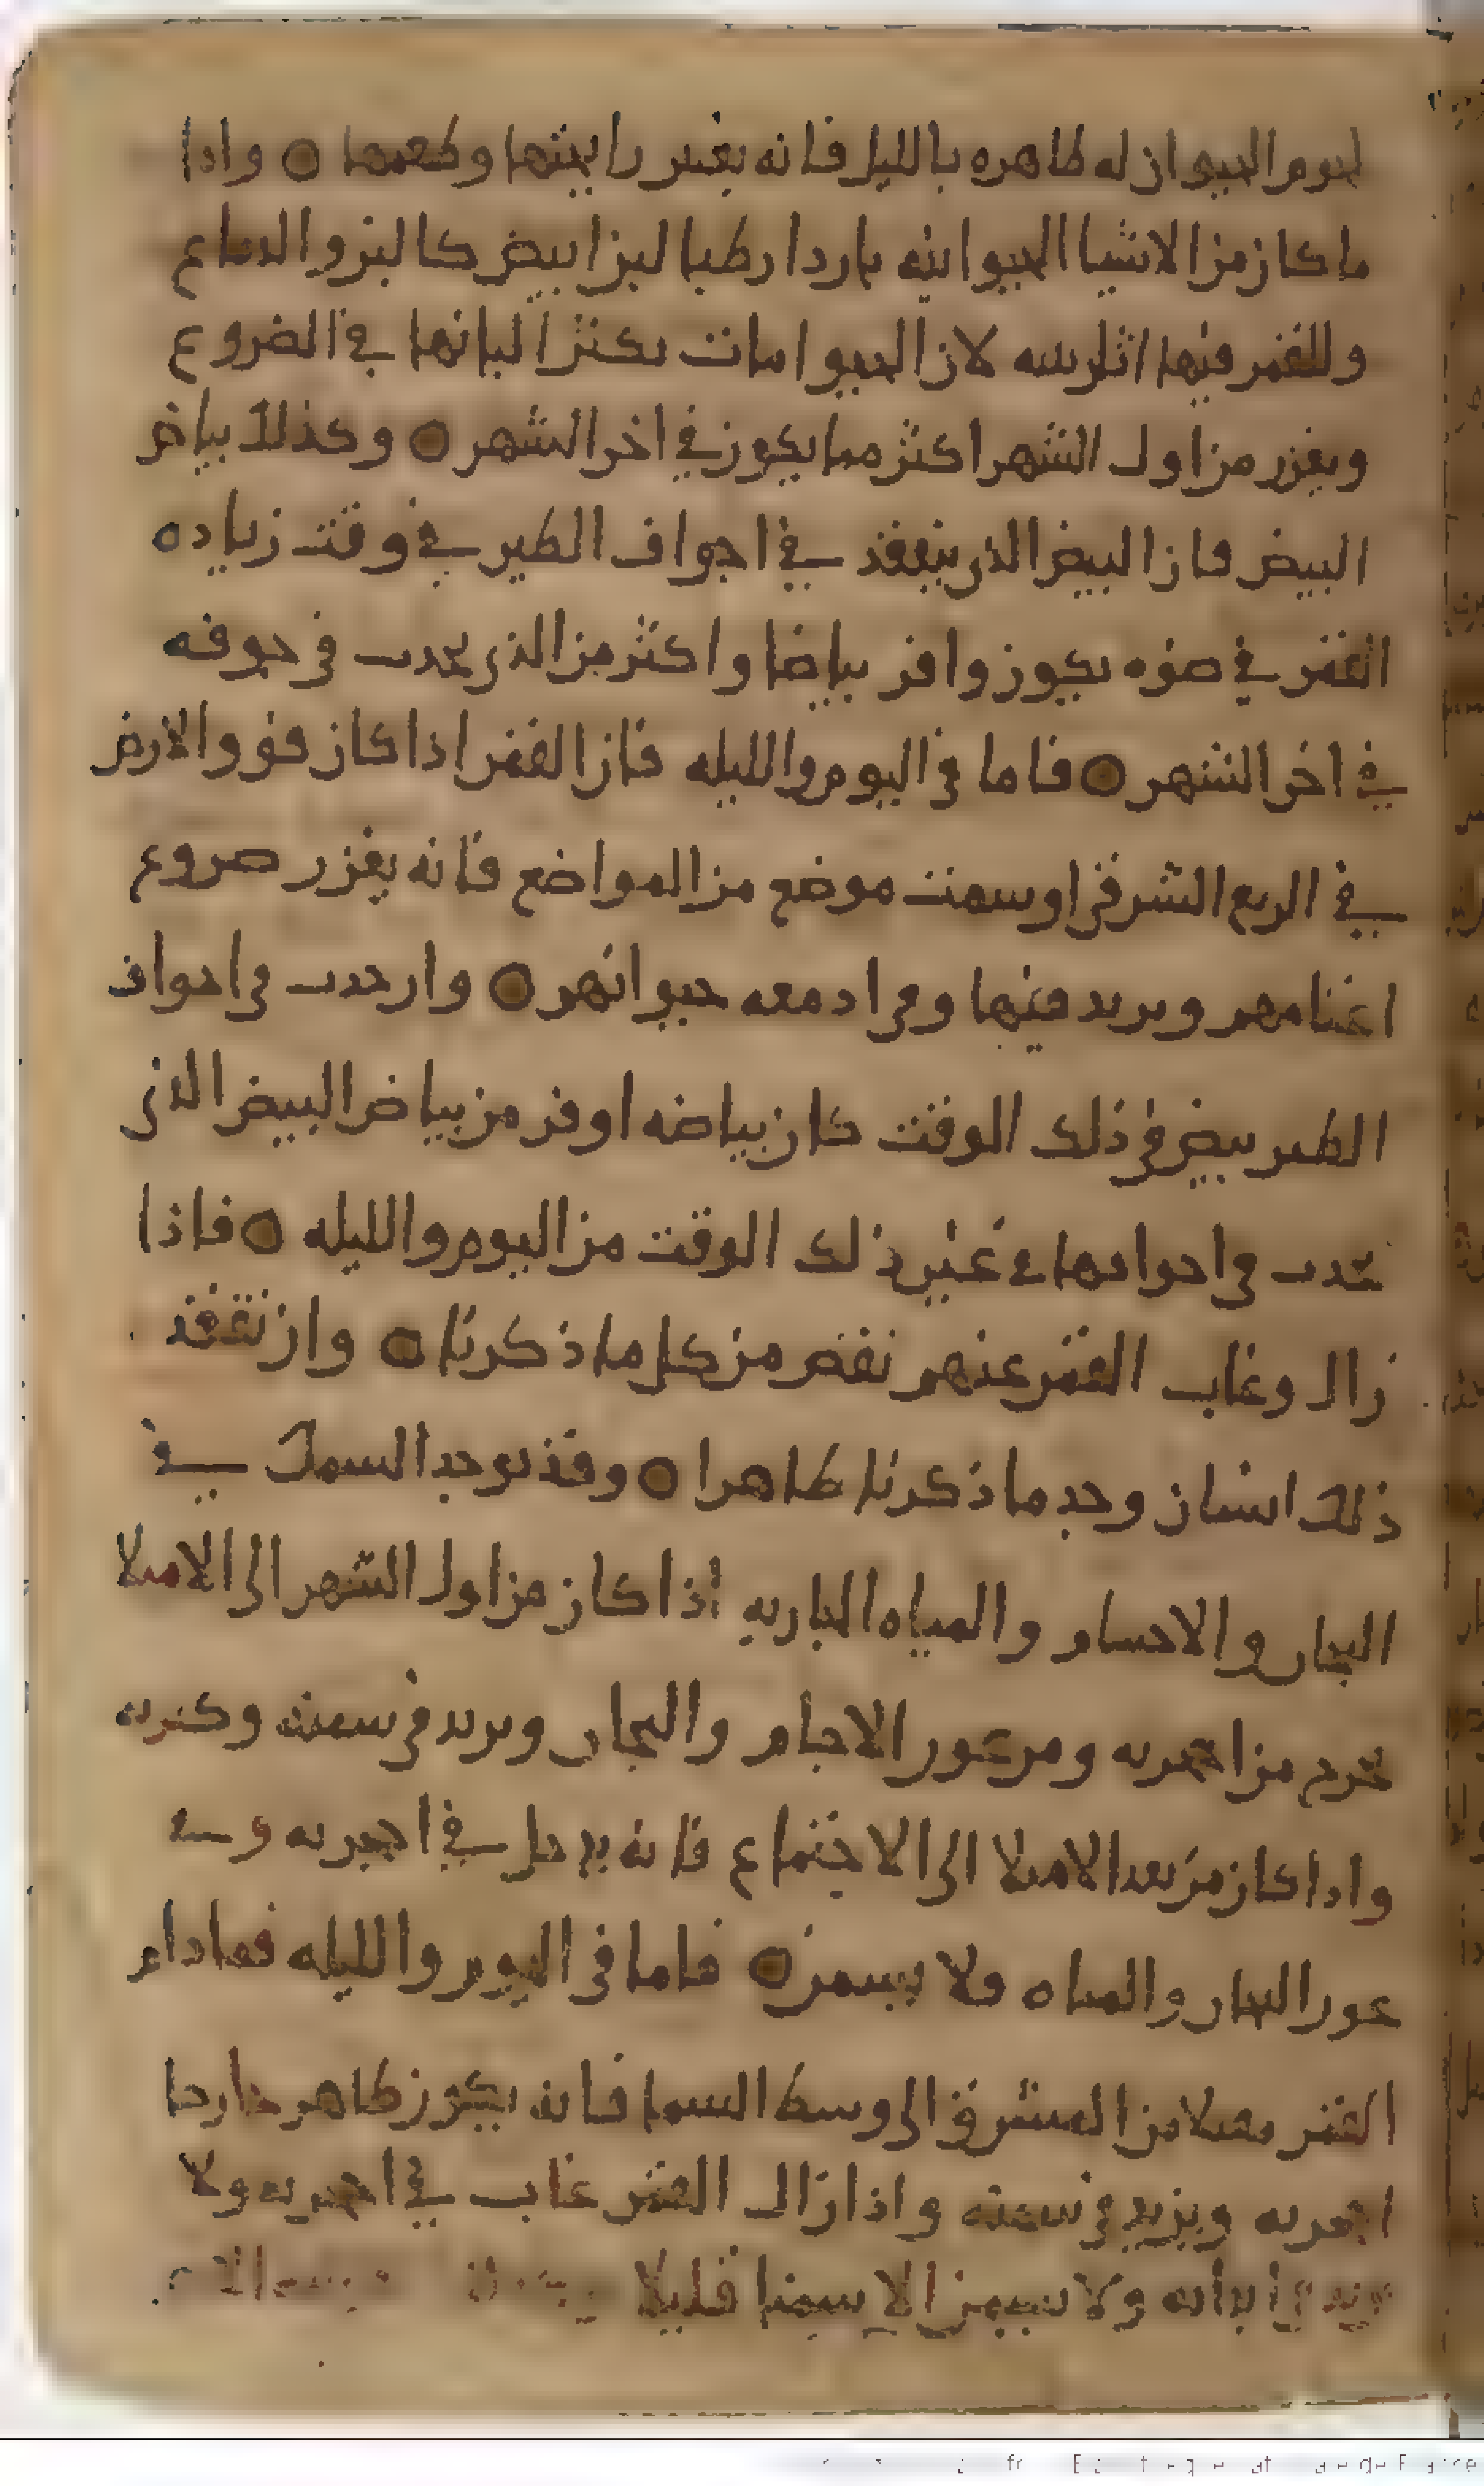 لحوم الحيوان له ظاهره بالليل فانه يغير رايحتها وطعمها ○ واذا
ما كان من الاشيا الحيوانيه باردا رطبا لين ابيض كاللبن والدماغ
وللقمر فيها اثار بينه لان الحيوانات تكثر البانها في الضروع
ويغزر من اول الشهر اكثر مما يكون في اخر الشهر ○ وكذلك بياض
البيض فان البيض الذي ينعقد في اجواف الطير في وقت زياده
القمر في ضوه يكون وافر بياضا واكثر من الذي يحدث في جوفه
في اخر الشهر ○ فاما في اليوم والليله فان القمر اذا كان فوق الارض
في الربع الشرقي او سمت موضع من المواضع فانه يغزر ضروع
اغنامهم ويزيد فيها وفي ادمغه حيوانهم ○ وان حدث في اجواف
الطير بيض في ذلك الوقت كان بياضه اوفر من بياض البيض الذي
يحدث في اجوافها في غير ذلك الوقت من اليوم والليله ○ فاذا
زال وغاب القمر عنهم نقص من كل ما ذكرنا ○ وان تفقد
ذلك انسان وجد ما ذكرنا ظاهرا ○ وقد يوجد السمك في
البحار والاجسام والمياه الجاريه اذا كان من اول الشهر الى الامتلا
يخرج من اجحرته ومن غور الاجام والبحار ويزيد في سمنه وكثرته
واذا كان من بعد الامتلا الى الاجتماع فانه يدخل في اجحرته وفي
غور البحار والمياه ولا يسمن ○ فاما في اليوم والليله فما دام
القمر مقبلا من المشرق الى وسط السما فانه يكون ظاهر خارجا
اجحرته ويزيد في سمنه واذا زال القمر غاب في اجحرته ولا
ولا يسمن الا سمنا قليلا